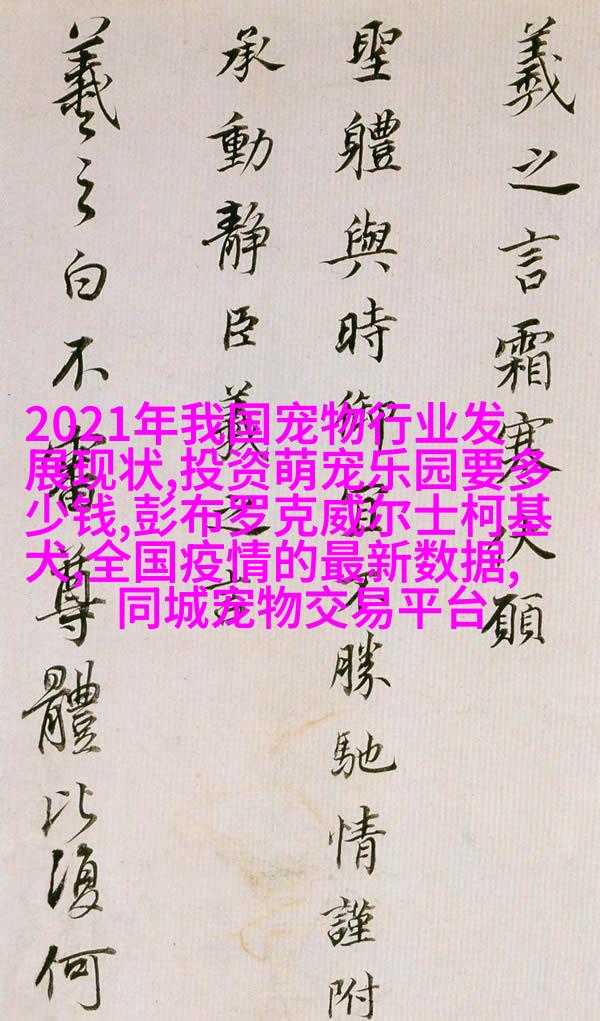 羲之言霜寒伏願
聖體與時御宜不勝馳情謹附
承動靜臣羲之言
羲之白不審尊體比復何
2021年我国宠物行业发
展现状,投资萌宠乐园要多
少钱,彭布罗克威尔士柯基
犬,全国疫情的最新数据,
同城宠物交易平台